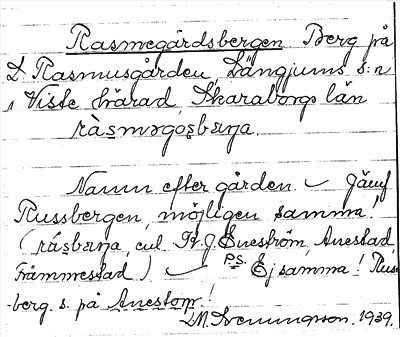 Rasmegårdsbergen Berg på
L. Rasmusgården, Längjums s:n
i Viste härad, Skaraborgs län
ràsməgo̱sbærja.
Namn efter gården. – Jämf
Russbergen, möjligen samma!
(rúsbærja, enl. Hr J. Eneström, Anestad,
Främmestad) – P.S. Ej samma! Russ-
-berg. s. på Anestom!
L.M. Svenungsson. 1939.